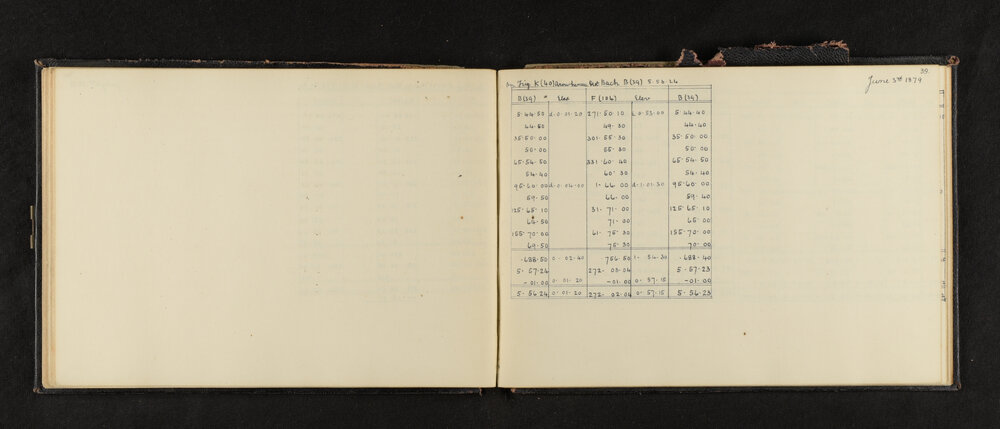 39.
June 3rd 1879
Trig. K (40) Back B (39) 5.56.24
B (39) Elev F (106) Elev B (39)
5.44.50 d.0.01.20 271.50.10 d.0.53.00 5.44.40
44.50 49.30 44.40
35.50.00 301.55.30 35.50.00
50.00 55.30 50.00
65.54.50 331.60.40 65.54.50
54.40 60.30 54.40
95.60.00 d.0.04.00 1.66.00 d.1.01.30 95.60.00
59.50 66.00 59.40
125.65.10 31.71.00 125.65.10
64.50 71.00 65.00
155.70.00 61.75.30 155.70.00
69.50 75.30 70.00
.688.50 0.02.40 756.50 1.54.30 .688.40
5.57.24 272.03.04 5.57.23
-01.00 0.01.20 -01.00 0.57.15 -01.00
5.56.24 0.01.20 272.02.04 0.57.15 5.56.23